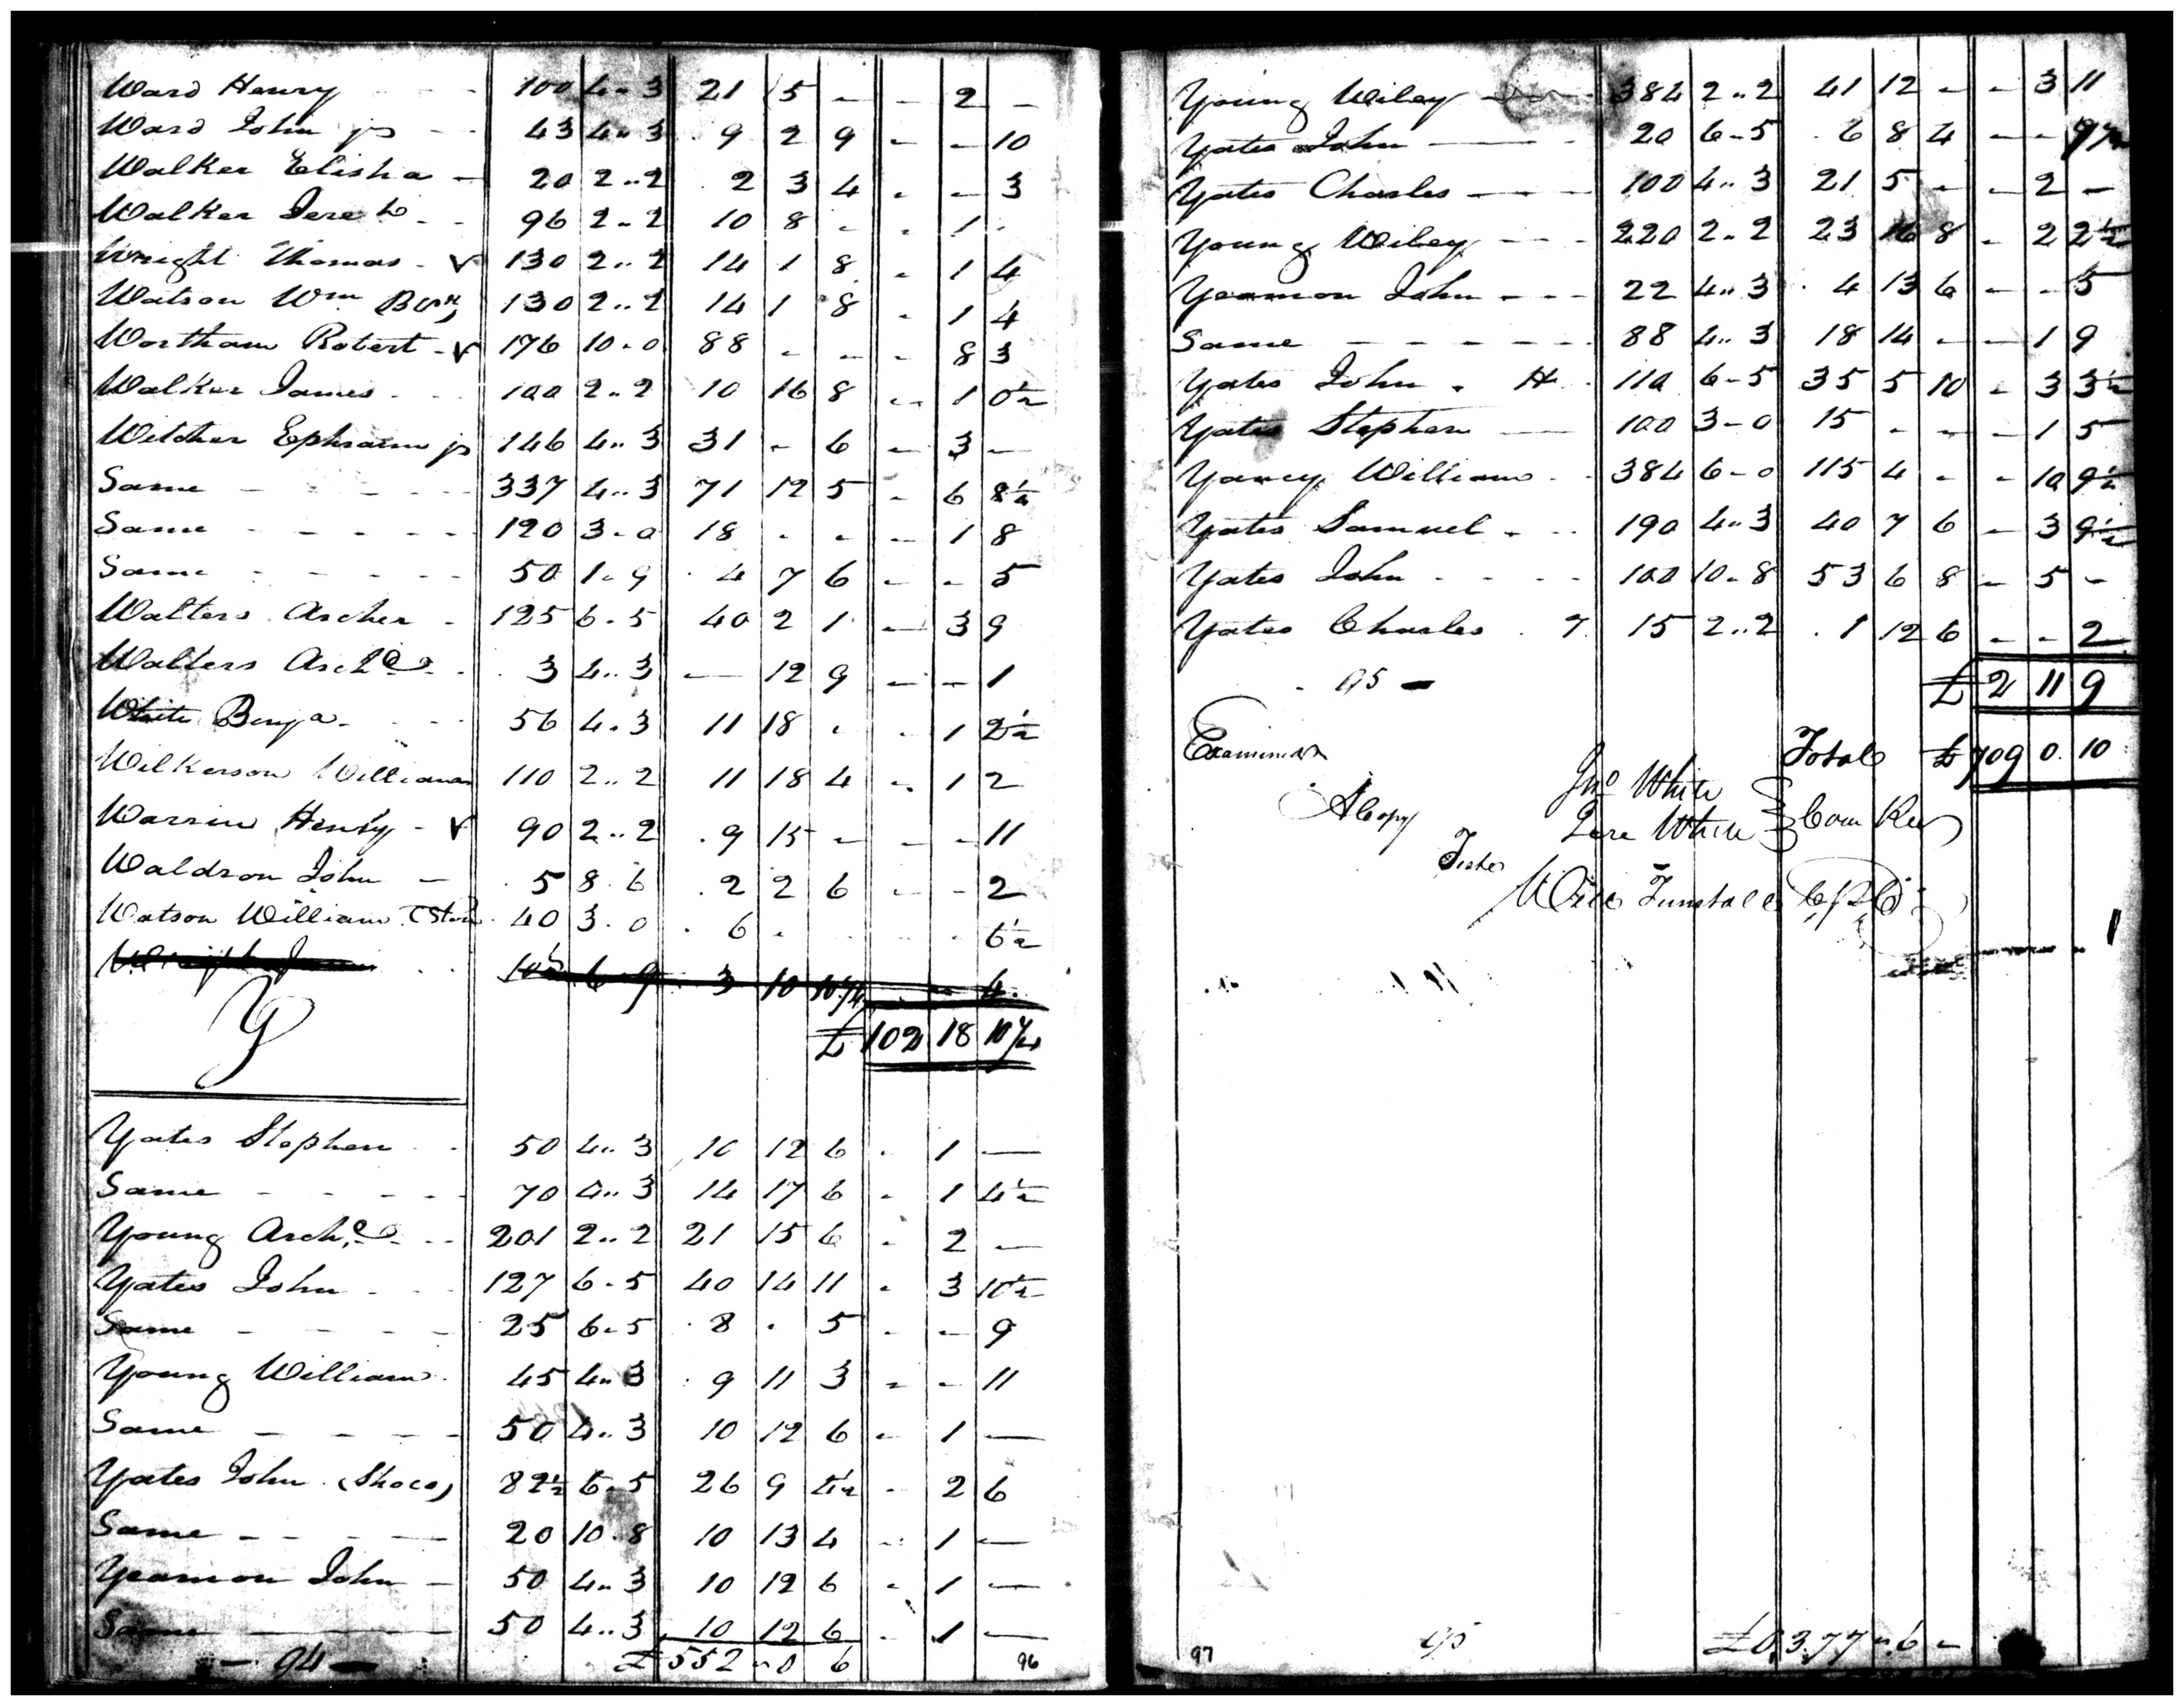 Ward Henry - - - 100 4..3 21 5 - - 2 -
Ward John jr - - 43 4..3 9 2 9 - - 10
Walker Elisha - 20 2..2 2 3 4 - - 3
Walker Jere h - - 96 2..2 10 8 - - 1 -
Wright Thomas - V 130 2..2 14 1 8 - 1 4
Watson Wm 130 2..2 14 1 8 - 1 4
Wortham Robert - V 176 10-0 88 - - - 8 3
Walker James - - 100 2..2 10 16 8 - 1 0½
Witcher Ephraim jr 146 4..3 31 - 6 - 3 -
Same - - - - 337 4..3 71 12 5 - 6 8½
Same - - - - 120 3-0 18 - - - 1 8
Same - - - - 50 1-9 4 7 6 - - 5
Walters Archer - 125 6-5 40 2 1 - 3 9
Walters Archd - 3 4..3 - 12 9 - - 1
White Benja - - 56 4..3 11 18 - - 1 2½
Wilkerson William 110 2..2 11 18 4 - 1 2
Warrin Henry - V 90 2..2 9 15 - - - 11
Waldron John - 5 8.6 2 2 6 - - 2
Watson William 40 3.0 6 - - - - 6½
Wright 10½ 6 9 3 10 10¾ - - 4
£ 102 18 10¾
Y
Yates Stephen - 50 4..3 10 12 6 - 1 -
Same - - - - 70 4..3 14 17 6 - 1 4½
Young Archd - - 201 2..2 21 15 6 - 2 -
Yates John - - 127 6-5 40 14 11 - 3 10½
Same - - - - 25 6-5 8 - 5 - - 9
Young William - 45 4..3 9 11 3 - - 11
Same - - - - 50 4..3 10 12 6 - 1 -
Yates John (Shoco) 82½ 6-5 26 9 4½ - 2 6
Same - - - - 20 10-8 10 13 4 - 1 -
Yeamon John - 50 4..3 10 12 6 - 1 -
Same 50 4..3 10 12 6 - 1 -
- 94 - £552 -0 6 96
Young Wiley 384 2..2 41 12 - - 3 11
Yates John - - 20 6-5 6 8 4 - - 7½
Yates Charles - - 100 4..3 21 5 - - 2 -
Young Wiley - - 220 2..2 23 16 8 - 2 2½
Yeamon John - - - 22 4..3 4 13 6 - - 5
Same - - - - - 88 4..3 18 14 - - 1 9
Yates John . H . 110 6-5 35 5 10 - 3 3½
Yates Stephen - 100 3-0 15 - - - 1 5
Yancy William - - 384 6-0 115 4 - - 10 9½
Yates Samuel - - 190 4..3 40 7 6 - 3 9½
Yates John - - - - 100 10-8 53 6 8 - 5 -
Yates Charles . 7 15 2..2 1 12 6 - - 2
95 - £ 2 11 9
Examined Total £709 0. 10
Jno White
A Copy Jere White } Com Rev
Teste
Will Tunstall
97 95 £ 377 " 6 -